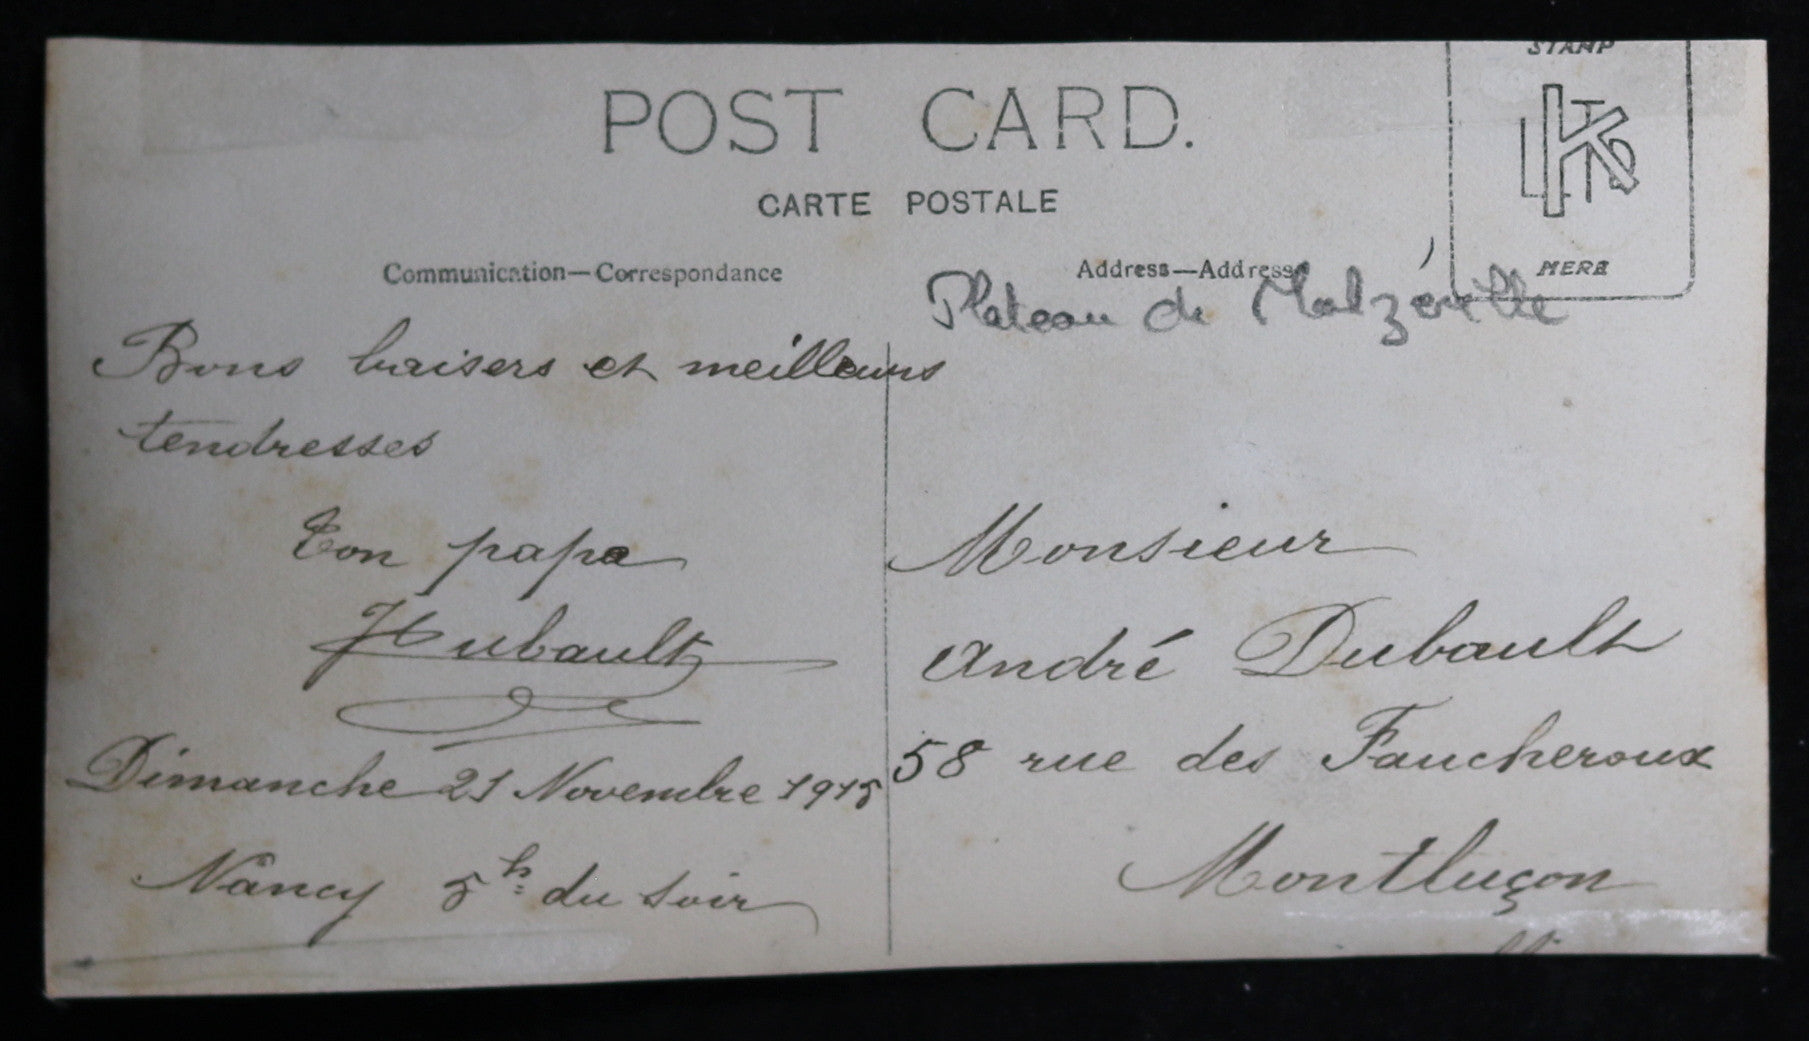 STAMP
POST CARD.
CARTE POSTALE
Communication—Correspondance
Address—Address
HERE
Plateau de Malzéville
Bons baisers et meilleurs
tendresses
Ton papa
Hubault
Dimanche 21 Novembre 1915
Nancy 5h du soir
Monsieur
André Dubault
58 rue des Faucheroux
Montluçon